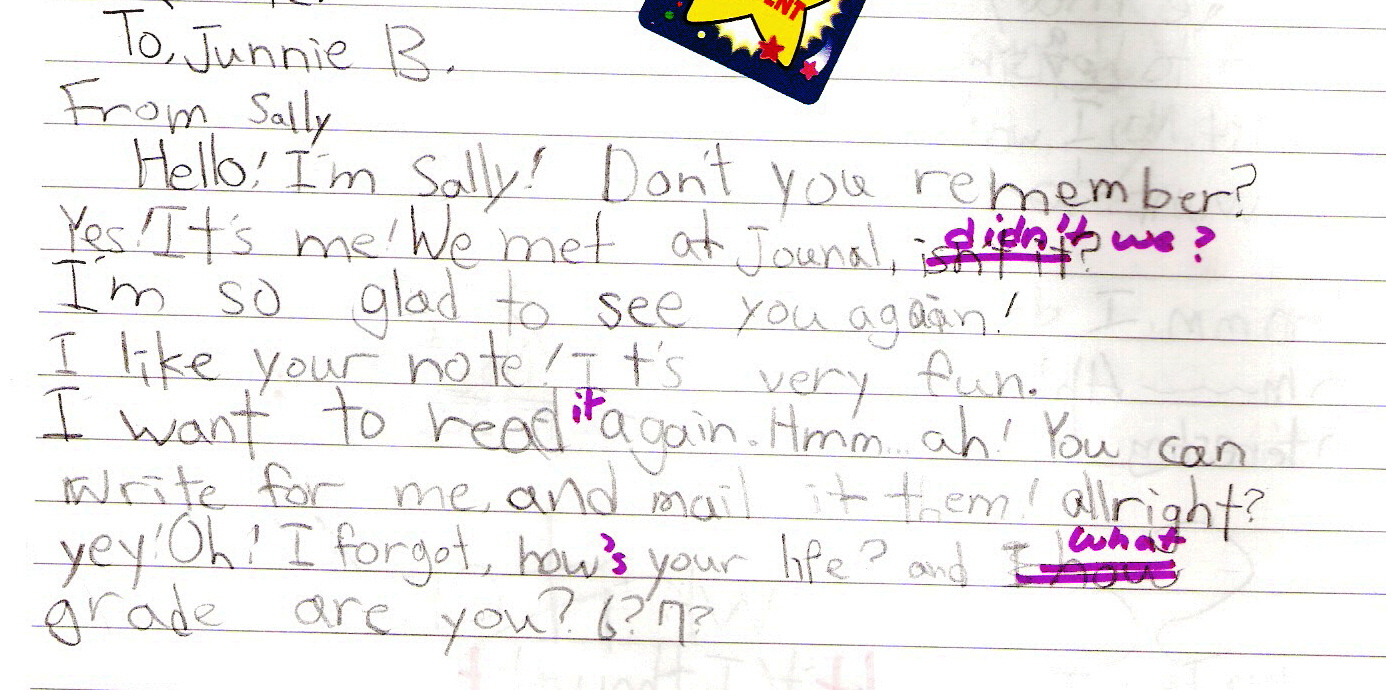 ENT
To, Junnie B.
From Sally
Hello! I'm Sally! Don't you remember?
Yes! It's me! We met at Jounal, isn't it? didn't we?
I'm so glad to see you again!
I like your note! It's very fun.
I want to read it again. Hmm... ah! You can
write for me, and mail it them! allright?
yey! Oh! I forgot, how's your life? and I how what
grade are you? 6? 7?